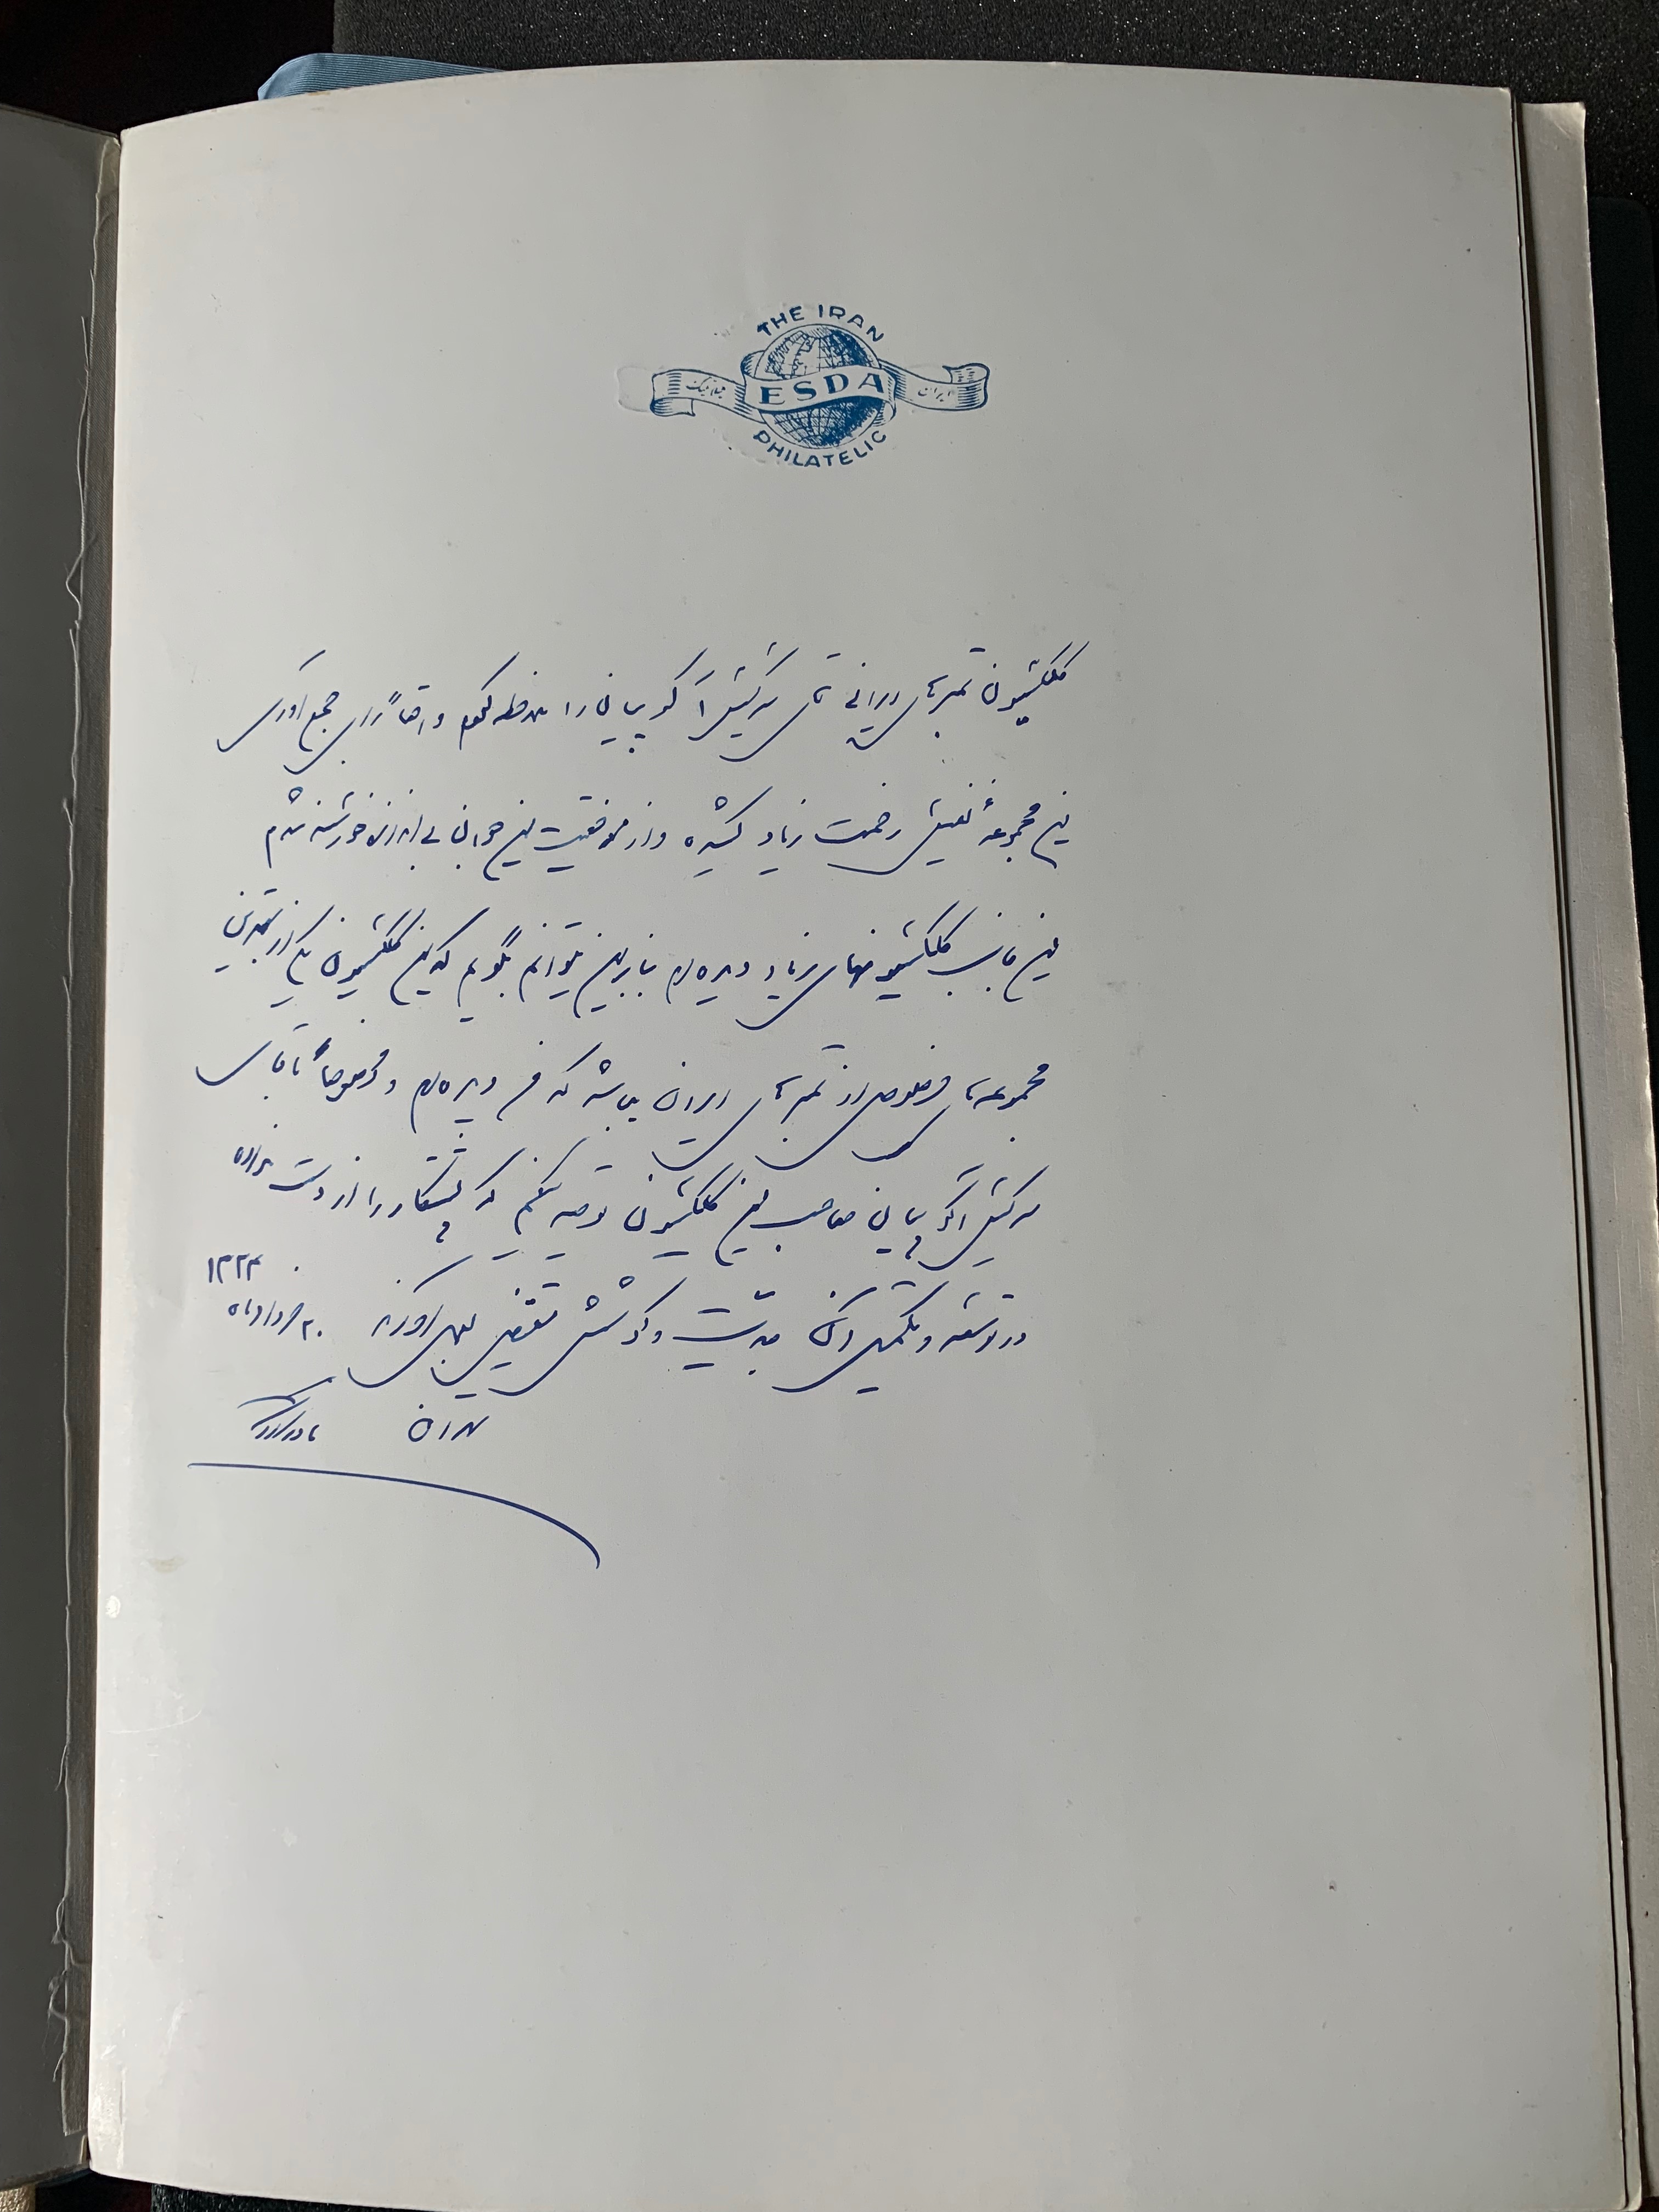 THE IRAN
ESDA
ایران
PHILATELIC
کلکسیون تمبرهای ایرانی آقای سرکیس آکوپیانی را ملاحظه نمودم واقعاً برای جمع آوری
این مجموعه نفیس زحمت زیاد کشیده و از موفقیت این جوان بی اندازه خورسند شدم
اینجانب کلکسیونهای زیاد دیده ام بنابراین میتوانم بگویم که این کلکسیون یکی از بهترین
مجموعه های تمبرهای ایران میباشد که من دیده ام و مخصوصاً بآقای
سرکیس آکوپیانی صاحب این کلکسیون توصیه میکنم که پشتکار را از دست نداده
در توسعه و تکمیل آن جدیت و کوشش مقتضی بعمل آورند
۱۳۳۴
۲۰ خرداد ماه
تهران